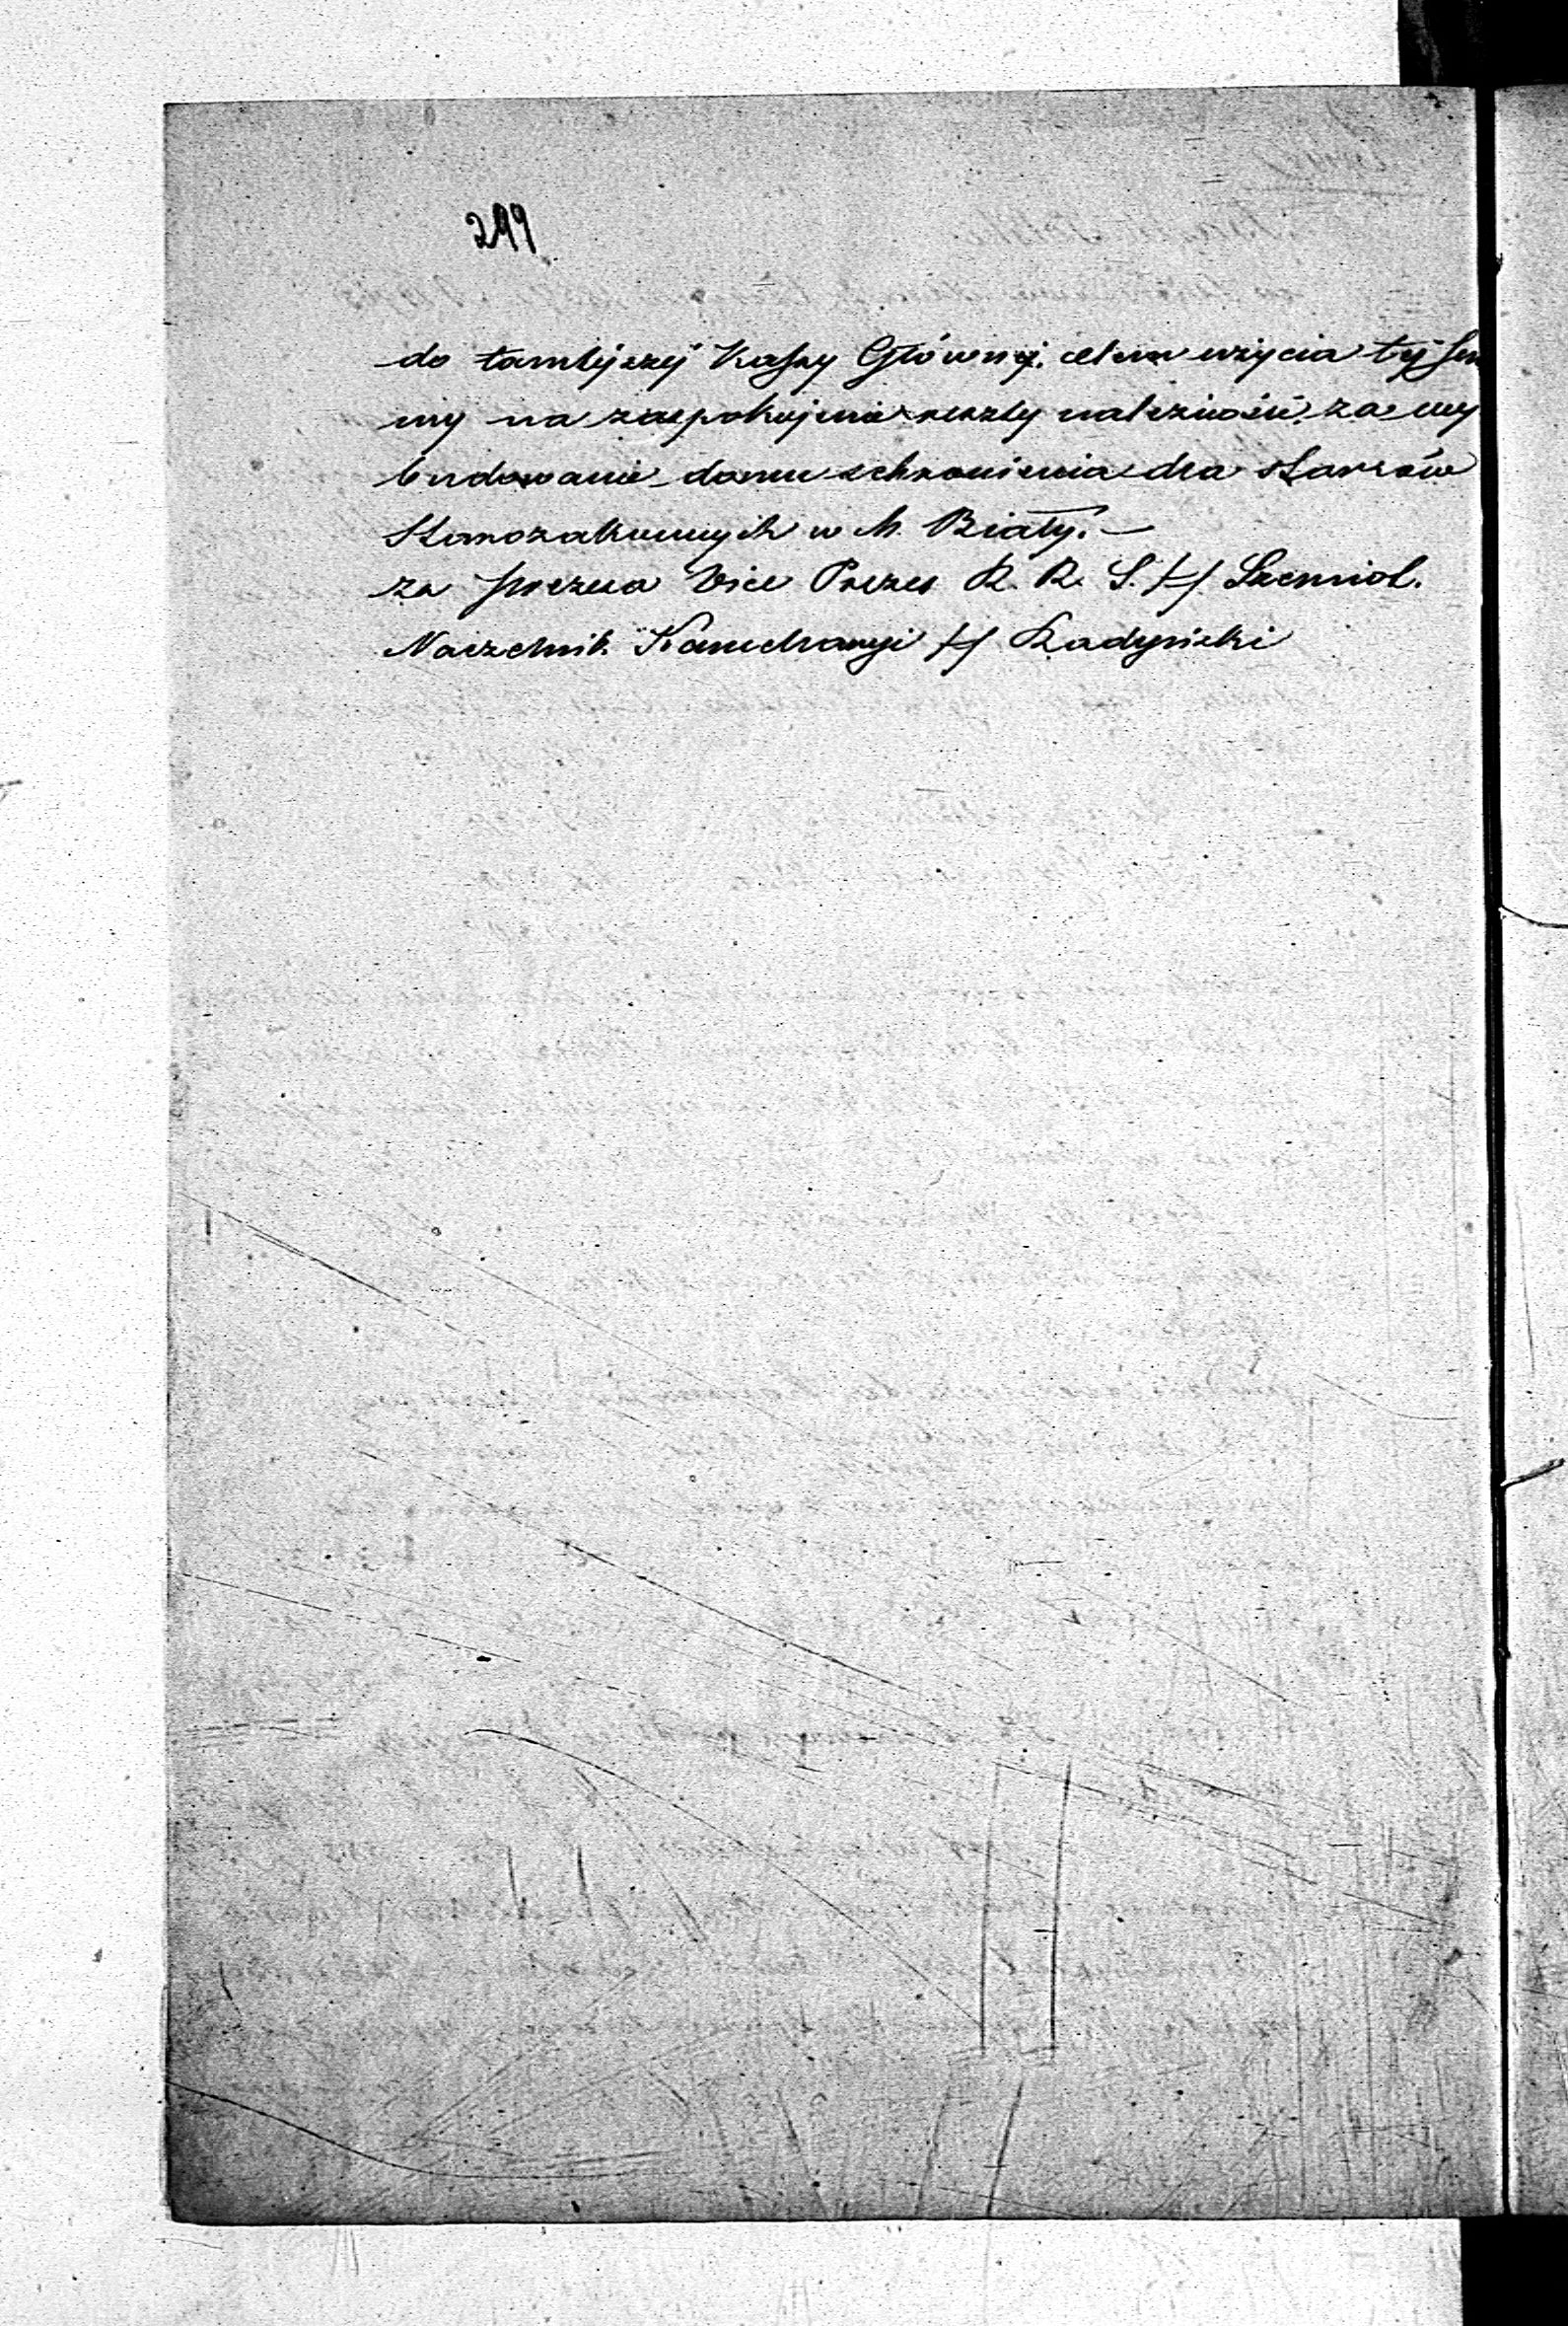 299
do tamtejszej Kassy Głównej, celem użycia tej Sum
my na zaspokojenie reszty należności za wy
budowanie domu schronienia dla starców
Starozakonnych w M. Białej. —
za Prezesa Vice Prezes R. R. S. /-/ Szemiot.
Naczelnik Kancelaryi /-/ Radyński